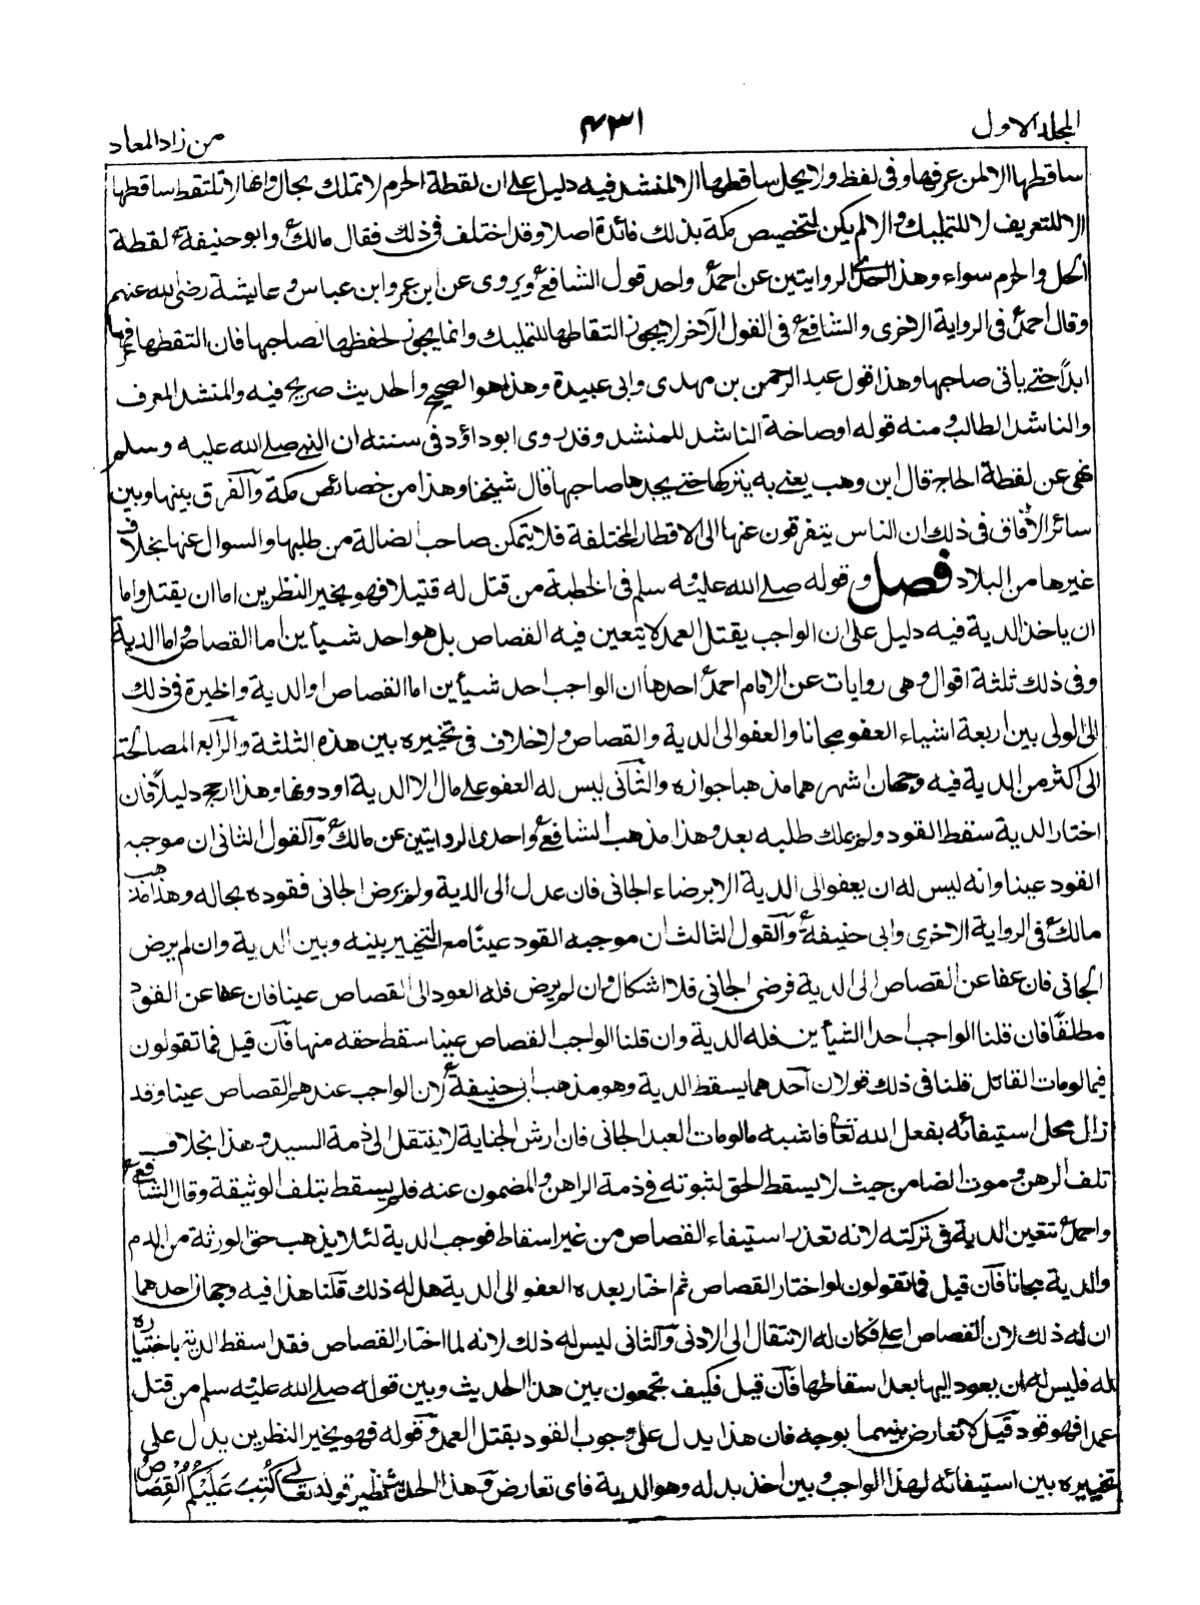 المجلد الاول
٤٣١
من زاد المعاد
ساقطها الا لمن عرفها وفى لفظ ولا يحل ساقطها الا لمنشد فيه دليل على ان لقطة الحرم لا تملك بحال وانها لا تلتقط ساقطها
الا للتعريف لا للتمليك والا لم يكن لتخصيص مكة بذلك فائدة اصلا وقد اختلف فى ذلك فقال مالك وابو حنيفة لقطة
الحل والحرم سواء وهذا احدى الروايتين عن احمد واحد قولى الشافعى ويروى عن ابن عمر وابن عباس وعايشة رضى الله عنهم
وقال احمد فى الرواية الاخرى والشافعى فى القول الآخر لا يجوز التقاطها للتمليك وانما يجوز لحفظها لصاحبها فان التقطها عرفها
ابدًا حتے ياتى صاحبها وهذا قول عبد الرحمن بن مهدى وابى عبيدة وهذا هو الصحيح والحديث صريح فيه والمنشد المعرف
والناشد الطالب ومنه قوله اوصاخة الناشد للمنشد وقد روى ابو داؤد فى سننه ان النبى صلے الله عليه وسلم
نهى عن لقطة الحاج قال ابن وهب يعنے به يتركها حتے يجدها صاحبها قال شيخنا وهذا من خصائص مكة والفرق بينها وبين
سائر الآفاق فى ذلك ان الناس يتفرقون عنها الى الاقطار المختلفة فلا يتمكن صاحب الضالة من طلبها والسوال عنها بخلاف
غيرها من البلاد فصل وقوله صلے الله عليه وسلم فى الخطبة من قتل له قتيلا فهو بخير النظرين اما ان يقتل واما
ان ياخذ الدية فيه دليل على ان الواجب بقتل العمد لا يتعين فيه القصاص بل هو احد شيأين اما القصاص واما الدية
وفى ذلك ثلثة اقوال وهى روايات عن الامام احمد احدها ان الواجب احد شيأين اما القصاص او الدية والخيرة فى ذلك
الى الولى بين اربعة اشياء العفو مجانا والعفو الى الدية والقصاص ولا خلاف فى تخييره بين هذه الثلثة والرابع المصالحة
الى اكثر من الدية فيه وجهان اشهرهما مذهبا جوازه والثانى ليس له العفو على مال الا الدية او دونها وهذا ارجح دليلاً فان
اختار الدية سقط القود ولم يملك طلبه بعد وهذا مذهب الشافعى واحدى الروايتين عن مالك والقول الثانى ان موجبه
القود عينا وانه ليس له ان يعفو الى الدية الا برضاء الجانى فان عدل الى الدية ولم يرض الجانى فقوده بحاله وهذا مذهب
مالك فى الرواية الاخرى وابى حنيفة والقول الثالث ان موجبه القود عينًا مع التخيير بينه وبين الدية وان لم يرض
الجانى فان عفا عن القصاص الى الدية فرضى الجانى فلا اشكال وان لم يرض فله العود الى القصاص عينا فان عفا عن القود
مطلقًا فان قلنا الواجب احد الشيأين فله الدية وان قلنا الواجب القصاص عينا سقط حقه منها فان قيل فما تقولون
فيما لومات القاتل قلنا فى ذلك قولان احدهما يسقط الدية وهو مذهب ابى حنيفة لان الواجب عندهم القصاص عينا وقد
زال محل استيفائه بفعل الله تعالى فاشبه ما لومات العبد الجانى فان ارش الجناية لا ينتقل الى ذمة السيد وهذا بخلاف
تلف الرهن وموت الضامن حيث لا يسقط الحق لثبوته فى ذمة الراهن والمضمون عنه فلم يسقط بتلف الوثيقة وقال الشافعى
واحمد تتعين الدية فى تركته لانه تعذر استيفاء القصاص من غير اسقاط فوجب الدية لئلا يذهب حق الورثة من الدم
والدية مجانا فان قيل فما تقولون لو اختار القصاص ثم اختار بعده العفو الى الدية هل له ذلك قلنا هذا فيه وجهان احدهما
ان له ذلك لان القصاص اعلى فكان له الانتقال الى الادنى والثانى ليس له ذلك لانه لما اختار القصاص فقد اسقط الدية باختياره
له فليس له ان يعود اليها بعد اسقاطها فان قيل فكيف تجمعون بين هذا الحديث وبين قوله صلے الله عليه وسلم من قتل
عمدا فهو قود قيل لا تعارض بينهما بوجه فان هذا يدل على وجوب القود بقتل العمد وقوله فهو بخير النظرين يدل على
تخييره بين استيفائه لهذا الواجب وبين اخذ بدله وهو الدية فاى تعارض وهذا الحديث نظير قوله تعالى كُتِبَ عَلَيْكُمُ الْقِصَاصُ